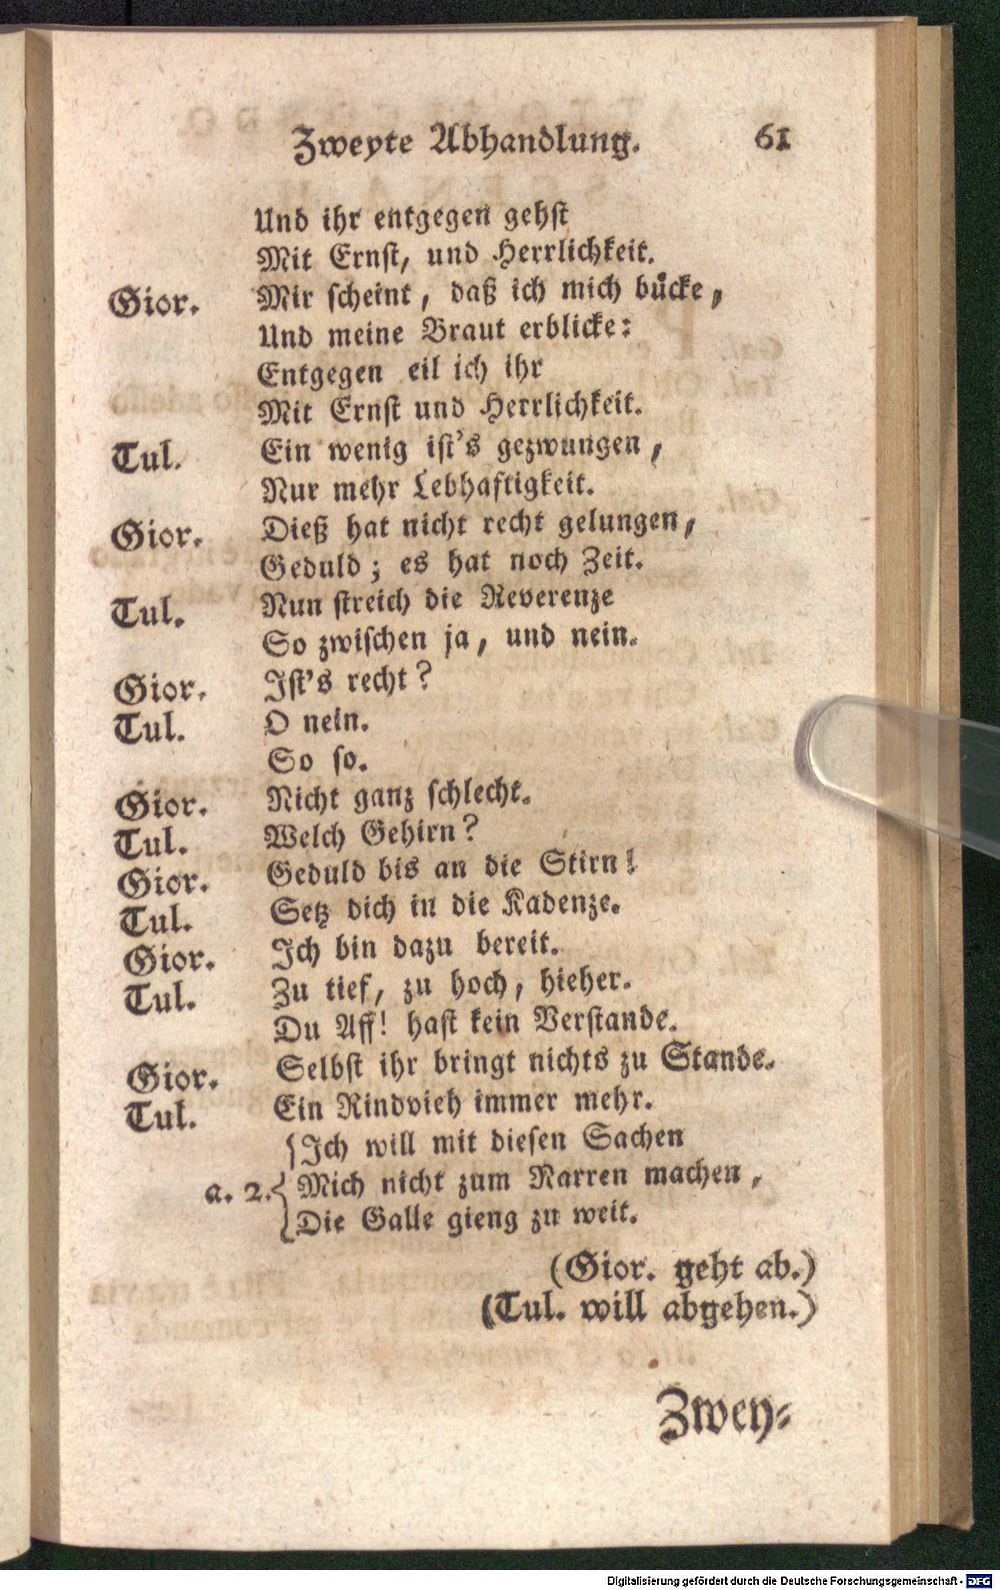 Zweyte Abhandlung. 61
Und ihr entgegen gehst
Mit Ernst, und Herrlichkeit.
Gior. Mir scheint, daß ich mich bücke,
Und meine Braut erblicke:
Entgegen eil ich ihr
Mit Ernst und Herrlichkeit.
Tul. Ein wenig ist's gezwungen,
Nur mehr Lebhaftigkeit.
Gior. Dieß hat nicht recht gelungen,
Geduld; es hat noch Zeit.
Tul. Nun streich die Reverenze
So zwischen ja, und nein.
Gior. Ist's recht?
Tul. O nein.
So so.
Gior. Nicht ganz schlecht.
Tul. Welch Gehirn?
Gior. Geduld bis an die Stirn!
Tul. Setz dich in die Kadenze.
Gior. Ich bin dazu bereit.
Tul. Zu tief, zu hoch, hieher.
Du Aff! hast kein Verstande.
Gior. Selbst ihr bringt nichts zu Stande.
Tul. Ein Rindvieh immer mehr.
Ich will mit diesen Sachen
a. 2. Mich nicht zum Narren machen,
Die Galle gieng zu weit.
(Gior. geht ab.)
(Tul. will abgehen.)
Zwey-
Digitalisierung gefördert durch die Deutsche Forschungsgemeinschaft - DFG